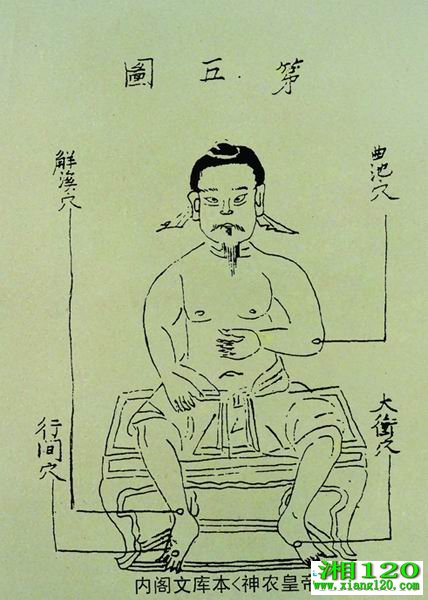 第五圖
曲池穴
解溪穴
大衝穴
行间穴
内阁文库本<神农皇帝
湘120
www.xiang120.com